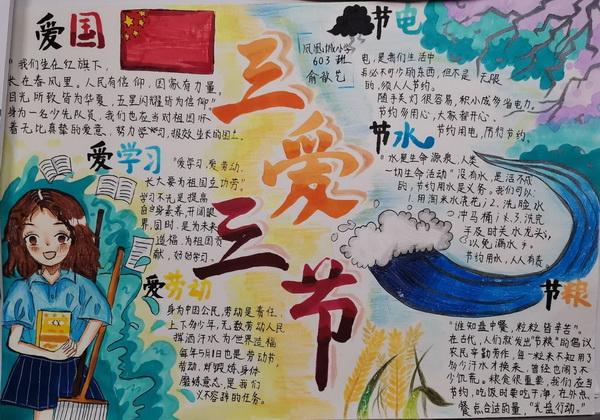 爱国
"我们生在红旗下,
长在春风里。人民有信仰,国家有力量,
目光所致皆为华夏,五星闪耀皆为信仰"
身为一名少先队员,我们也应当对祖国怀
着无比真挚的爱意,努力学习,报效生长的国土。
爱学习
"爱学习,爱劳动,
长大要为祖国立功劳"。
学习不光是提高
自身素养,开阔眼
界,同时,是为未来
造福,为祖国贡
献,好好学习。
爱劳动
身为中国公民,劳动是责任,
上下多少年,无数劳动人民
挥洒汗水为世界造福
每年5月1日也是劳动节,
劳动,对锻炼身体
磨练意志,是我们
义不容辞的任务。
三爱
三节
凤凰城小学
603班
节电
电,是我们生活中
必不可少的东西,但不是无限
的,须人人节约。
随手关灯很容易,积小成多省电力。
节约多用心,大家都开心。
节约用电,历行节约。
节水
"水是生命源泉,人类
一切生命活动"没有水,是活不成
的,节约用水是义务。我们可以:
1.用淘米水浇花;2.洗脸水
冲马桶;3.洗完
手及时关水龙头,
以免漏水。
节约用水,人人有责
节粮
"谁知盘中餐,粒粒皆辛苦"。
在古代,人们就发出"节粮"的倡议,
农民辛勤劳作,每一粒米不知用了
多少汗水才换来,曾经也闹了不
少饥荒。粮食很重要,我们应当
节约,吃饭时要吃干净,在外点
餐点合适的量"光盘行动。"